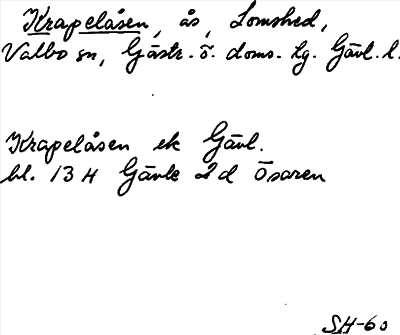 Krapelåsen, ås, Lomshed,
Valbo sn, Gästr. ö. doms. hg. Gävl. l.
Krapelåsen ek Gävl.
bl. 13 H Gävle 2 d Ösaren
SH-60